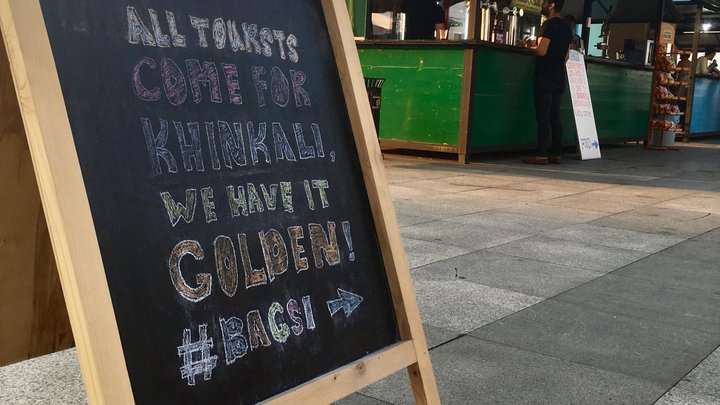 ALL TOURISTS
COME FOR
KHINKALI,
WE HAVE IT
GOLDEN!
#BAGSI →